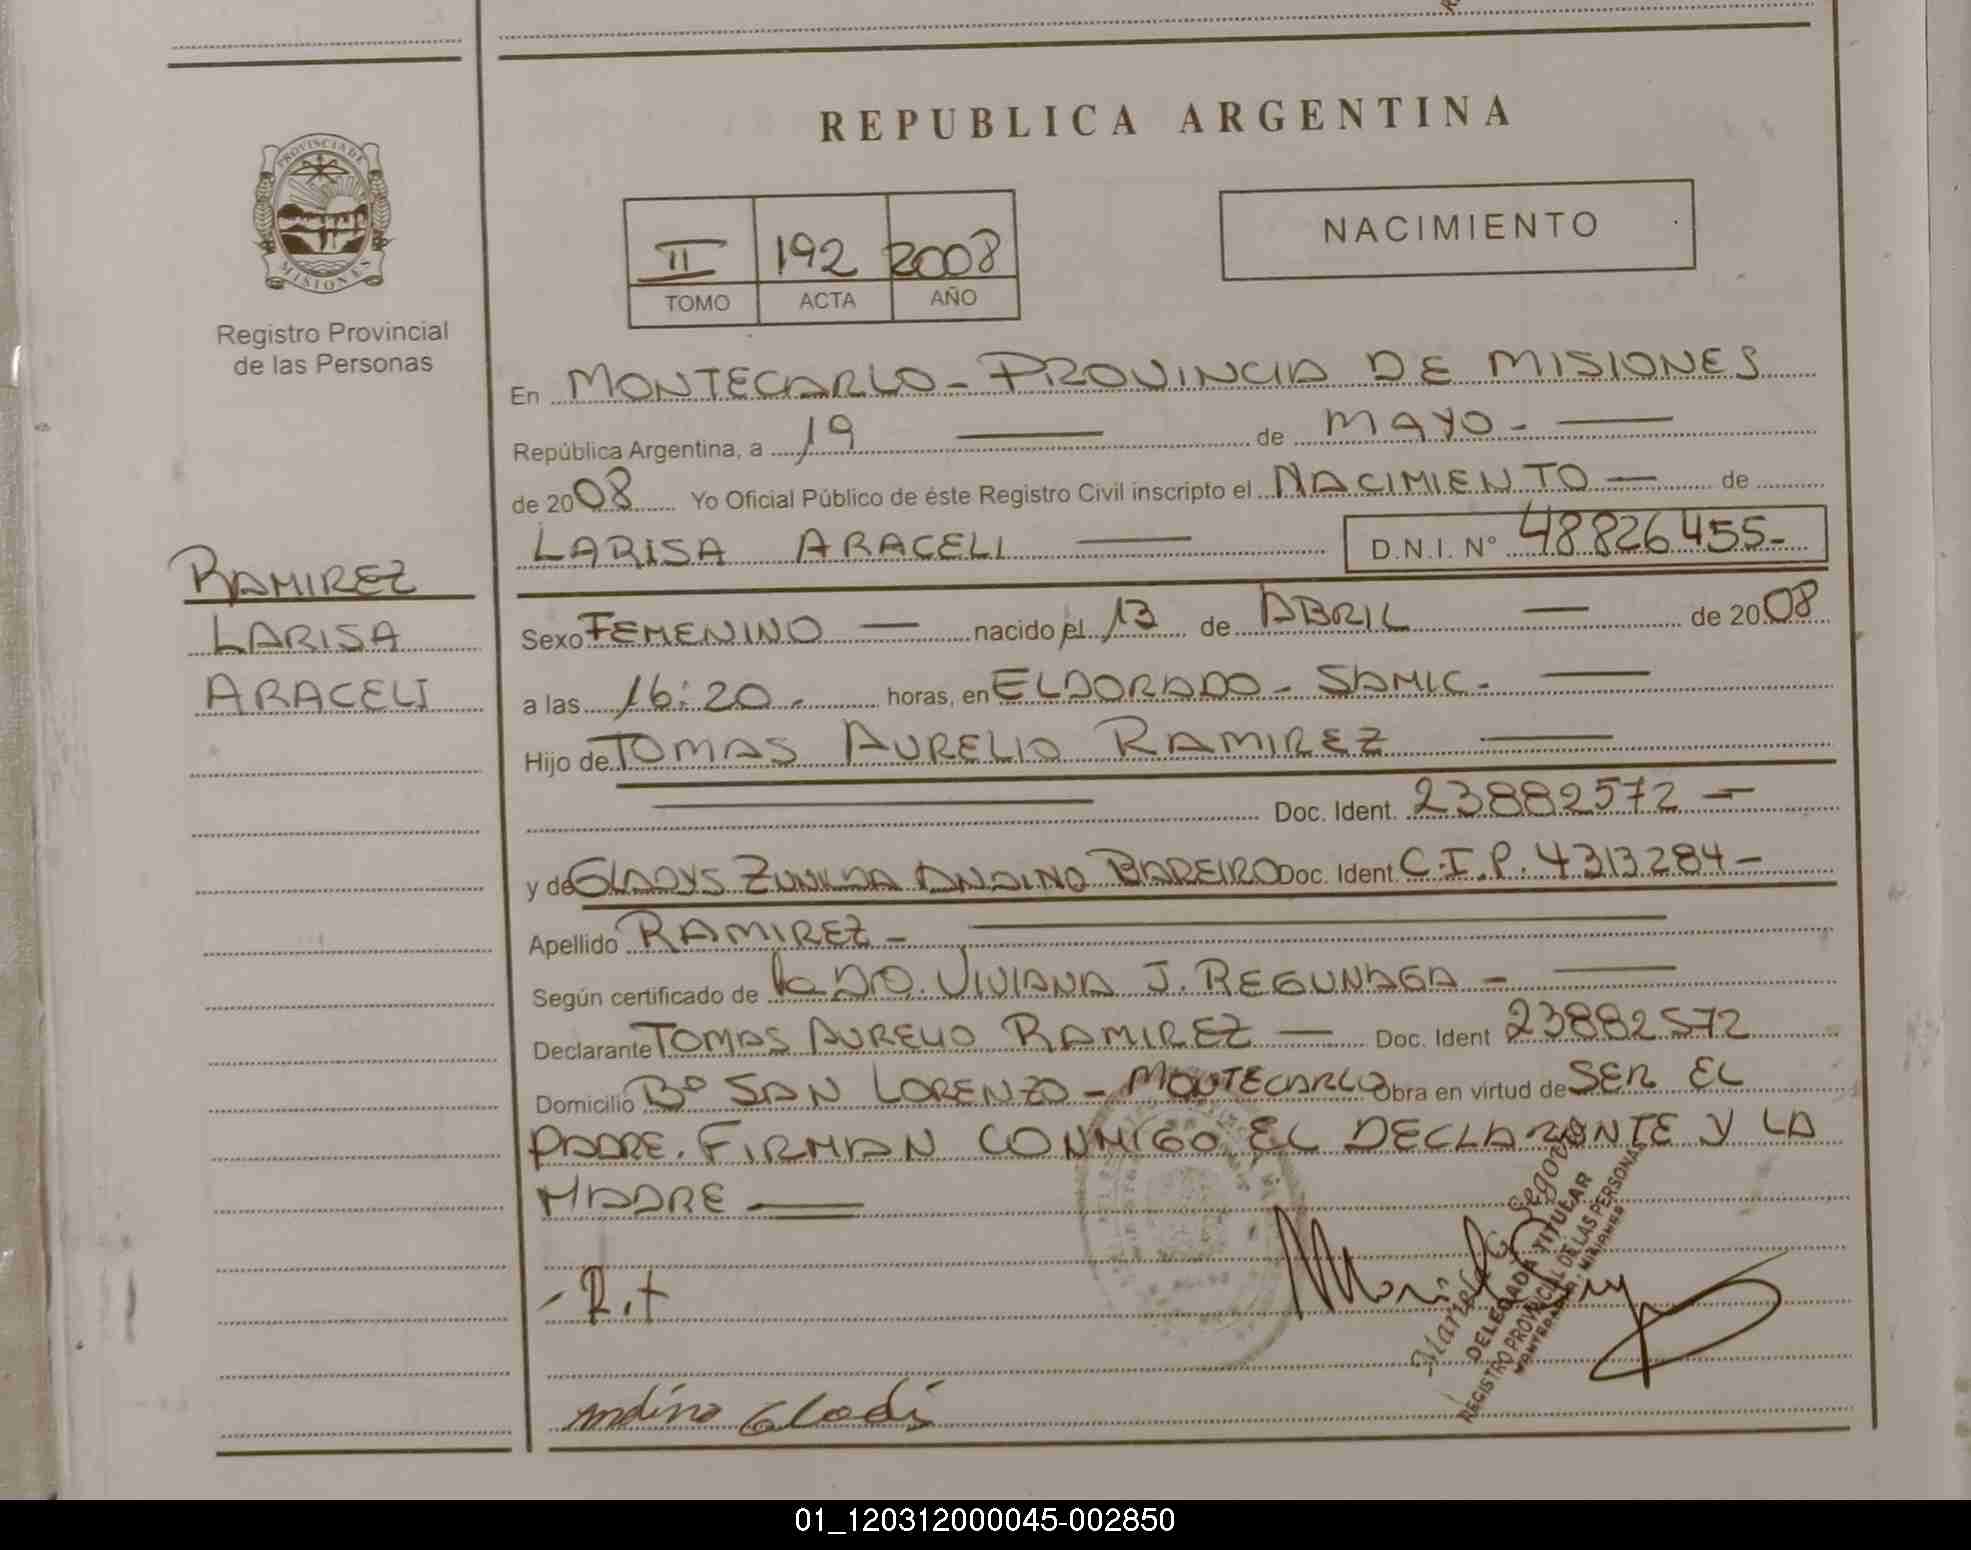 REPUBLICA ARGENTINA
PROVINCIA DE
MISIONES
Registro Provincial
de las Personas
II 192 2008
TOMO ACTA AÑO
NACIMIENTO
En MONTECARLO - PROVINCIA DE MISIONES
República Argentina, a 19 de MAYO -
de 2008 Yo Oficial Público de éste Registro Civil inscripto el NACIMIENTO de
LARISA ARACELI D.N.I. Nº 48826455-
RAMIREZ
LARISA
ARACELI
Sexo FEMENINO nacido el 13 de ABRIL de 2008
a las 16:20. horas, en ELDORADO - SAMIC.
Hijo de TOMAS AURELIO RAMIREZ
Doc. Ident. 23882572
y de GLADYS ZUNILDA ANDINO BAREIRO Doc. Ident. C.I.P. 4313284-
Apellido RAMIREZ -
Según certificado de VIVIANA J. REGUNAGA -
Declarante TOMAS AURELIO RAMIREZ Doc. Ident 23882572
Domicilio Bº SAN LORENZO - MONTECARLO Obra en virtud de SER EL
PADRE. FIRMAN CONMIGO EL DECLARANTE Y LA
MADRE
- R.t
Mariela G. Segovia
DELEGADA TITULAR
REGISTRO PROVINCIAL DE LAS PERSONAS
Andino Gladi
01_120312000045-002850